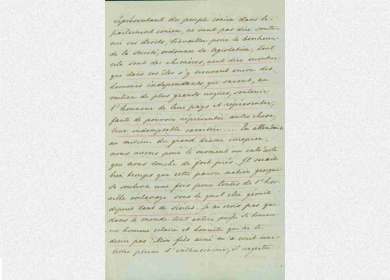 représentant du peuple ionien dans le
parlement ionien, ne veut pas dire soute-
nir ses droits, travailler pour le bonheur
de la société, ordonner la législation, tout
cela sont de chimères, veut dire montrer
que dans ces îles s'y trouvent encore des
hommes indépendants qui savent, au
milieu de plus grands risques, soutenir
l'honneur de leur pays et représenter,
faute de pouvoir représenter autre chose,
leur indomptable caractère .... En attendant
au milieu du grand drame européen,
nous avons pour le moment un
qui nous touche de fort près. Il serait
bien temps que cette pauvre nation grecque
se souleva une fois pour toutes de l'hor-
rible esclavage sous le quel elle gémit
depuis tant de siècles. Je ne crois pas que
dans le monde tout entier puisse se trouver
un homme éclairé et honnête qui ne le
désire pas. Mon frère aîné m'a écrit une
lettre pleine d'enthousiasme, il regrette